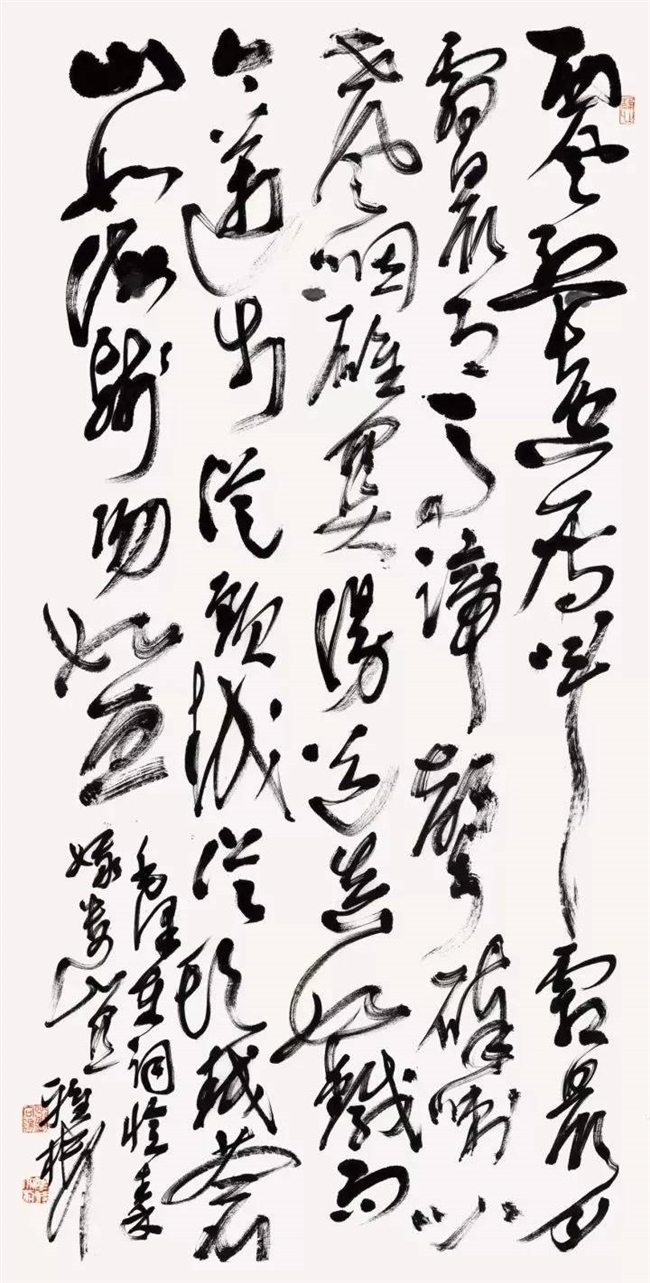 西风烈长空雁叫霜晨月
霜晨月马蹄声碎喇叭
声咽雄关漫道真如铁而
今迈步从头越从头越苍
山如海残阳如血
毛泽东词忆秦
娥娄山关